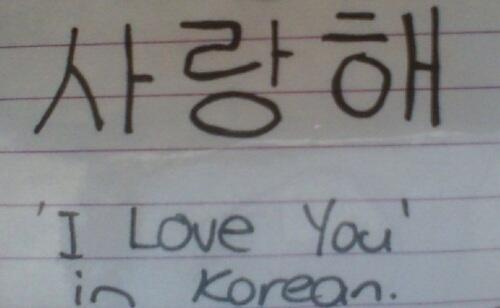 사랑해
'I Love You'
in Korean.